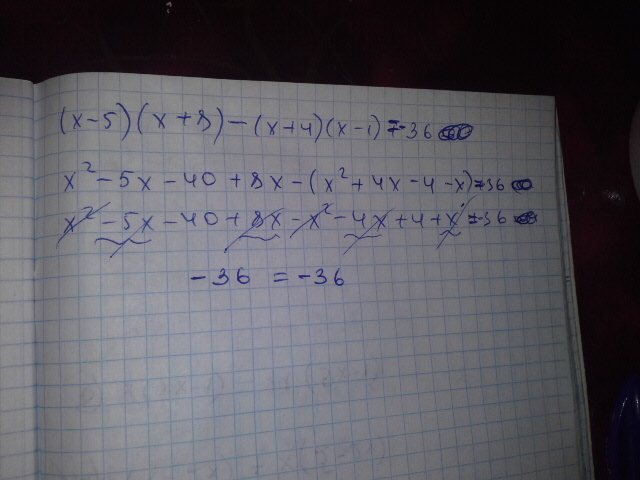 (x-5)(x+8)-(x+4)(x-1)=-36
x²-5x-40+8x-(x²+4x-4-x)=-36
x²-5x-40+8x-x²-4x+4+x=-36
-36=-36